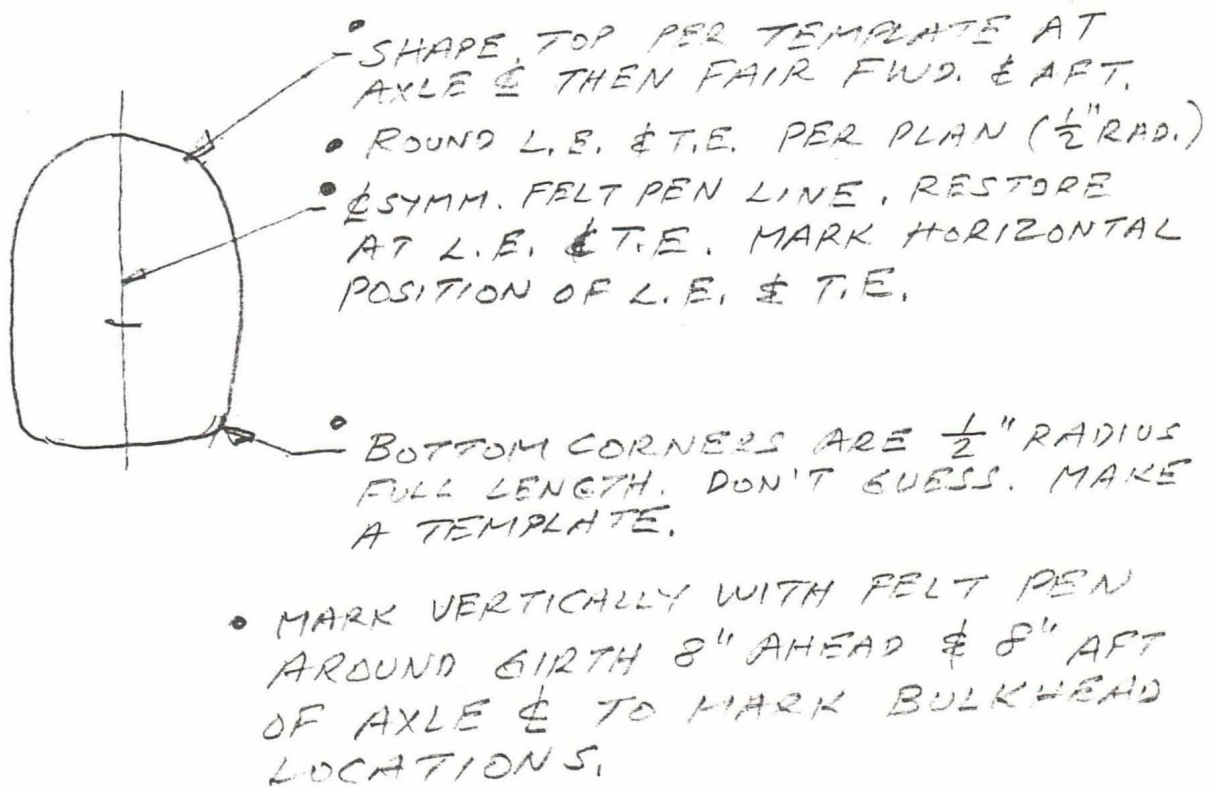 • SHAPE TOP PER TEMPLATE AT
AXLE ℄ THEN FAIR FWD. & AFT.
• ROUND L.E. & T.E. PER PLAN (½" RAD.)
• ℄ SYMM. FELT PEN LINE. RESTORE
AT L.E. & T.E. MARK HORIZONTAL
POSITION OF L.E. & T.E.
• BOTTOM CORNERS ARE ½" RADIUS
FULL LENGTH. DON'T GUESS. MAKE
A TEMPLATE.
• MARK VERTICALLY WITH FELT PEN
AROUND GIRTH 8" AHEAD & 8" AFT
OF AXLE ℄ TO MARK BULKHEAD
LOCATIONS.